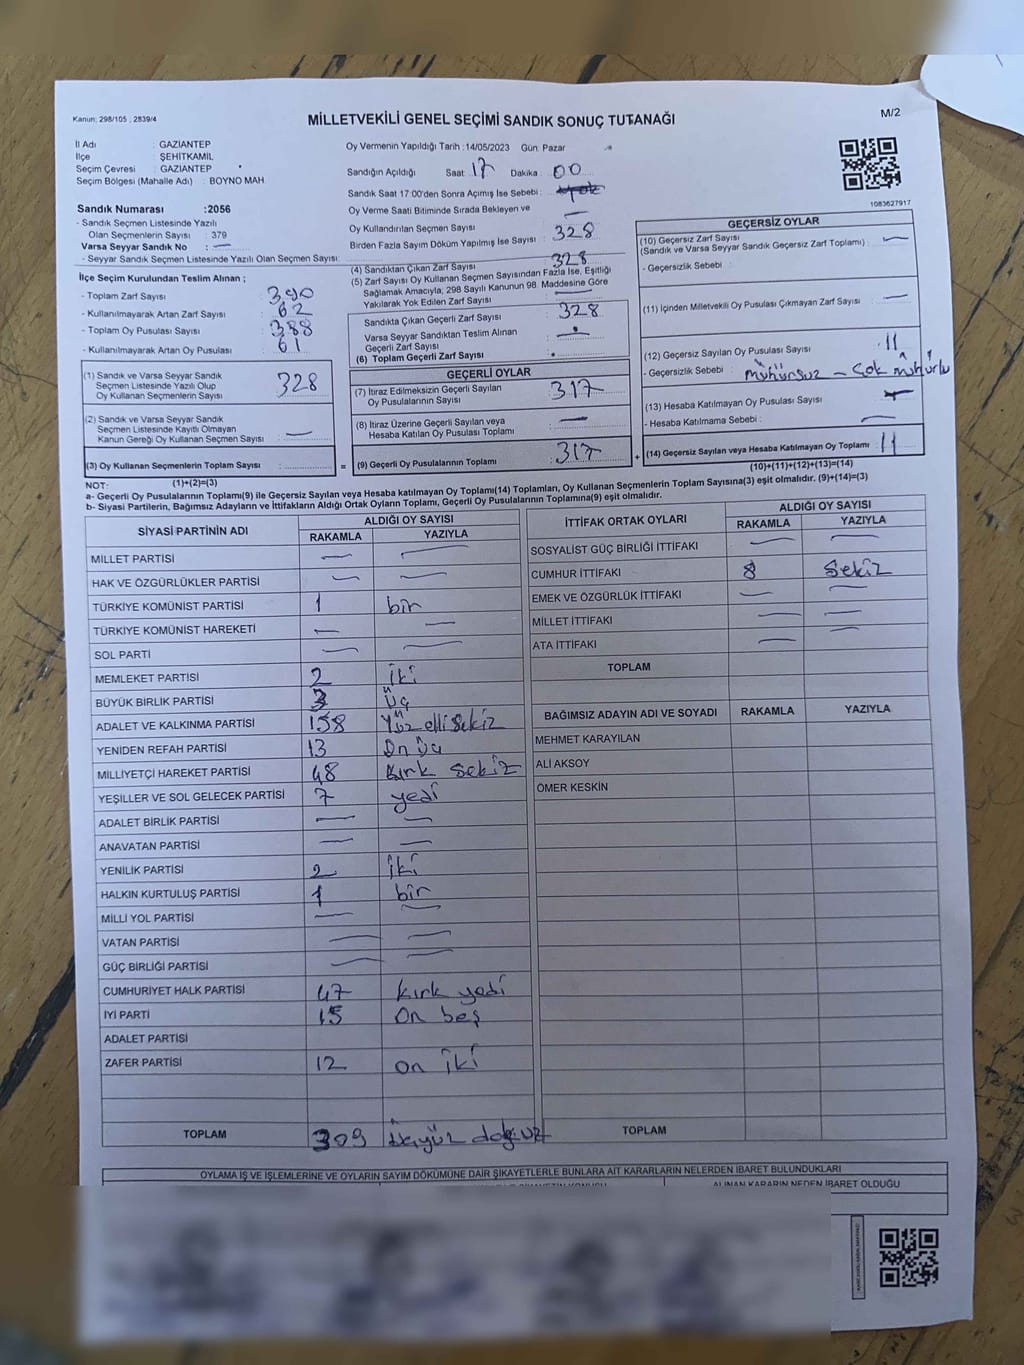 Kanun: 298/105 , 2839/4
MİLLETVEKİLİ GENEL SEÇİMİ SANDIK SONUÇ TUTANAĞI
M/2
İl Adı : GAZİANTEP
İlçe : ŞEHİTKAMİL
Seçim Çevresi : GAZİANTEP
Seçim Bölgesi (Mahalle Adı) : BOYNO MAH
Sandık Numarası :2056
- Sandık Seçmen Listesinde Yazılı
Olan Seçmenlerin Sayısı : 379
Varsa Seyyar Sandık No : —
- Seyyar Sandık Seçmen Listesinde Yazılı Olan Seçmen Sayısı:
Oy Vermenin Yapıldığı Tarih :14/05/2023 Gün: Pazar
Sandığın Açıldığı Saat : 17 Dakika : 00
Sandık Saat 17:00'den Sonra Açımış İse Sebebi :
Oy Verme Saati Bitiminde Sırada Bekleyen ve
Oy Kullandırılan Seçmen Sayısı : —
Birden Fazla Sayım Döküm Yapılmış İse Sayısı : 328
1083627917
İlçe Seçim Kurulundan Teslim Alınan ;
- Toplam Zarf Sayısı : 390
- Kullanılmayarak Artan Zarf Sayısı : 62
- Toplam Oy Pusulası Sayısı : 388
- Kullanılmayarak Artan Oy Pusulası : 61
(1) Sandık ve Varsa Seyyar Sandık
Seçmen Listesinde Yazılı Olup
Oy Kullanan Seçmenlerin Sayısı : 328
(2) Sandık ve Varsa Seyyar Sandık
Seçmen Listesinde Kayıtlı Olmayan
Kanun Gereği Oy Kullanan Seçmen Sayısı : —
(3) Oy Kullanan Seçmenlerin Toplam Sayısı :
(1)+(2)=(3)
(4) Sandıktan Çıkan Zarf Sayısı : 328
(5) Zarf Sayısı Oy Kullanan Seçmen Sayısından Fazla İse, Eşitliği
Sağlamak Amacıyla; 298 Sayılı Kanunun 98. Maddesine Göre
Yakılarak Yok Edilen Zarf Sayısı : —
Sandıkta Çıkan Geçerli Zarf Sayısı : 328
Varsa Seyyar Sandıktan Teslim Alınan
Geçerli Zarf Sayısı : —
(6) Toplam Geçerli Zarf Sayısı :
GEÇERLİ OYLAR
(7) İtiraz Edilmeksizin Geçerli Sayılan
Oy Pusulalarının Sayısı : 317
(8) İtiraz Üzerine Geçerli Sayılan veya
Hesaba Katılan Oy Pusulası Toplamı : —
= (9) Geçerli Oy Pusulalarının Toplamı : 317 +
GEÇERSİZ OYLAR
(10) Geçersiz Zarf Sayısı
(Sandık ve Varsa Seyyar Sandık Geçersiz Zarf Toplamı) : —
- Geçersizlik Sebebi :
(11) İçinden Milletvekili Oy Pusulası Çıkmayan Zarf Sayısı : —
(12) Geçersiz Sayılan Oy Pusulası Sayısı : 11
- Geçersizlik Sebebi : mühürsüz — çok mühürlü
(13) Hesaba Katılmayan Oy Pusulası Sayısı : —
- Hesaba Katılmama Sebebi : —
(14) Geçersiz Sayılan veya Hesaba Katılmayan Oy Toplamı : 11
(10)+(11)+(12)+(13)=(14)
NOT:
a- Geçerli Oy Pusulalarının Toplamı(9) ile Geçersiz Sayılan veya Hesaba katılmayan Oy Toplamı(14) Toplamları, Oy Kullanan Seçmenlerin Toplam Sayısına(3) eşit olmalıdır. (9)+(14)=(3)
b- Siyasi Partilerin, Bağımsız Adayların ve İttifakların Aldığı Ortak Oyların Toplamı, Geçerli Oy Pusulalarının Toplamına(9) eşit olmalıdır.
SİYASİ PARTİNİN ADI ALDIĞI OY SAYISI
RAKAMLA YAZIYLA
MİLLET PARTİSİ — —
HAK VE ÖZGÜRLÜKLER PARTİSİ — —
TÜRKİYE KOMÜNİST PARTİSİ 1 bir
TÜRKİYE KOMÜNİST HAREKETİ — —
SOL PARTİ — —
MEMLEKET PARTİSİ 2 iki
BÜYÜK BİRLİK PARTİSİ 3 üç
ADALET VE KALKINMA PARTİSİ 158 Yüz elli sekiz
YENİDEN REFAH PARTİSİ 13 On üç
MİLLİYETÇİ HAREKET PARTİSİ 48 Kırk sekiz
YEŞİLLER VE SOL GELECEK PARTİSİ 7 yedi
ADALET BİRLİK PARTİSİ — —
ANAVATAN PARTİSİ — —
YENİLİK PARTİSİ 2 iki
HALKIN KURTULUŞ PARTİSİ 1 bir
MİLLİ YOL PARTİSİ — —
VATAN PARTİSİ — —
GÜÇ BİRLİĞİ PARTİSİ — —
CUMHURİYET HALK PARTİSİ 47 kırk yedi
İYİ PARTİ 15 On beş
ADALET PARTİSİ
ZAFER PARTİSİ 12 on iki
TOPLAM 309 üçyüz dokuz
İTTİFAK ORTAK OYLARI ALDIĞI OY SAYISI
RAKAMLA YAZIYLA
SOSYALİST GÜÇ BİRLİĞİ İTTİFAKI — —
CUMHUR İTTİFAKI 8 Sekiz
EMEK VE ÖZGÜRLÜK İTTİFAKI — —
MİLLET İTTİFAKI — —
ATA İTTİFAKI — —
TOPLAM
BAĞIMSIZ ADAYIN ADI VE SOYADI RAKAMLA YAZIYLA
MEHMET KARAYILAN
ALİ AKSOY
ÖMER KESKİN
TOPLAM
OYLAMA İŞ VE İŞLEMLERİNE VE OYLARIN SAYIM DÖKÜMÜNE DAİR ŞİKAYETLERLE BUNLARA AİT KARARLARIN NELERDEN İBARET BULUNDUKLARI
ALINAN KARARIN NEDEN İBARET OLDUĞU